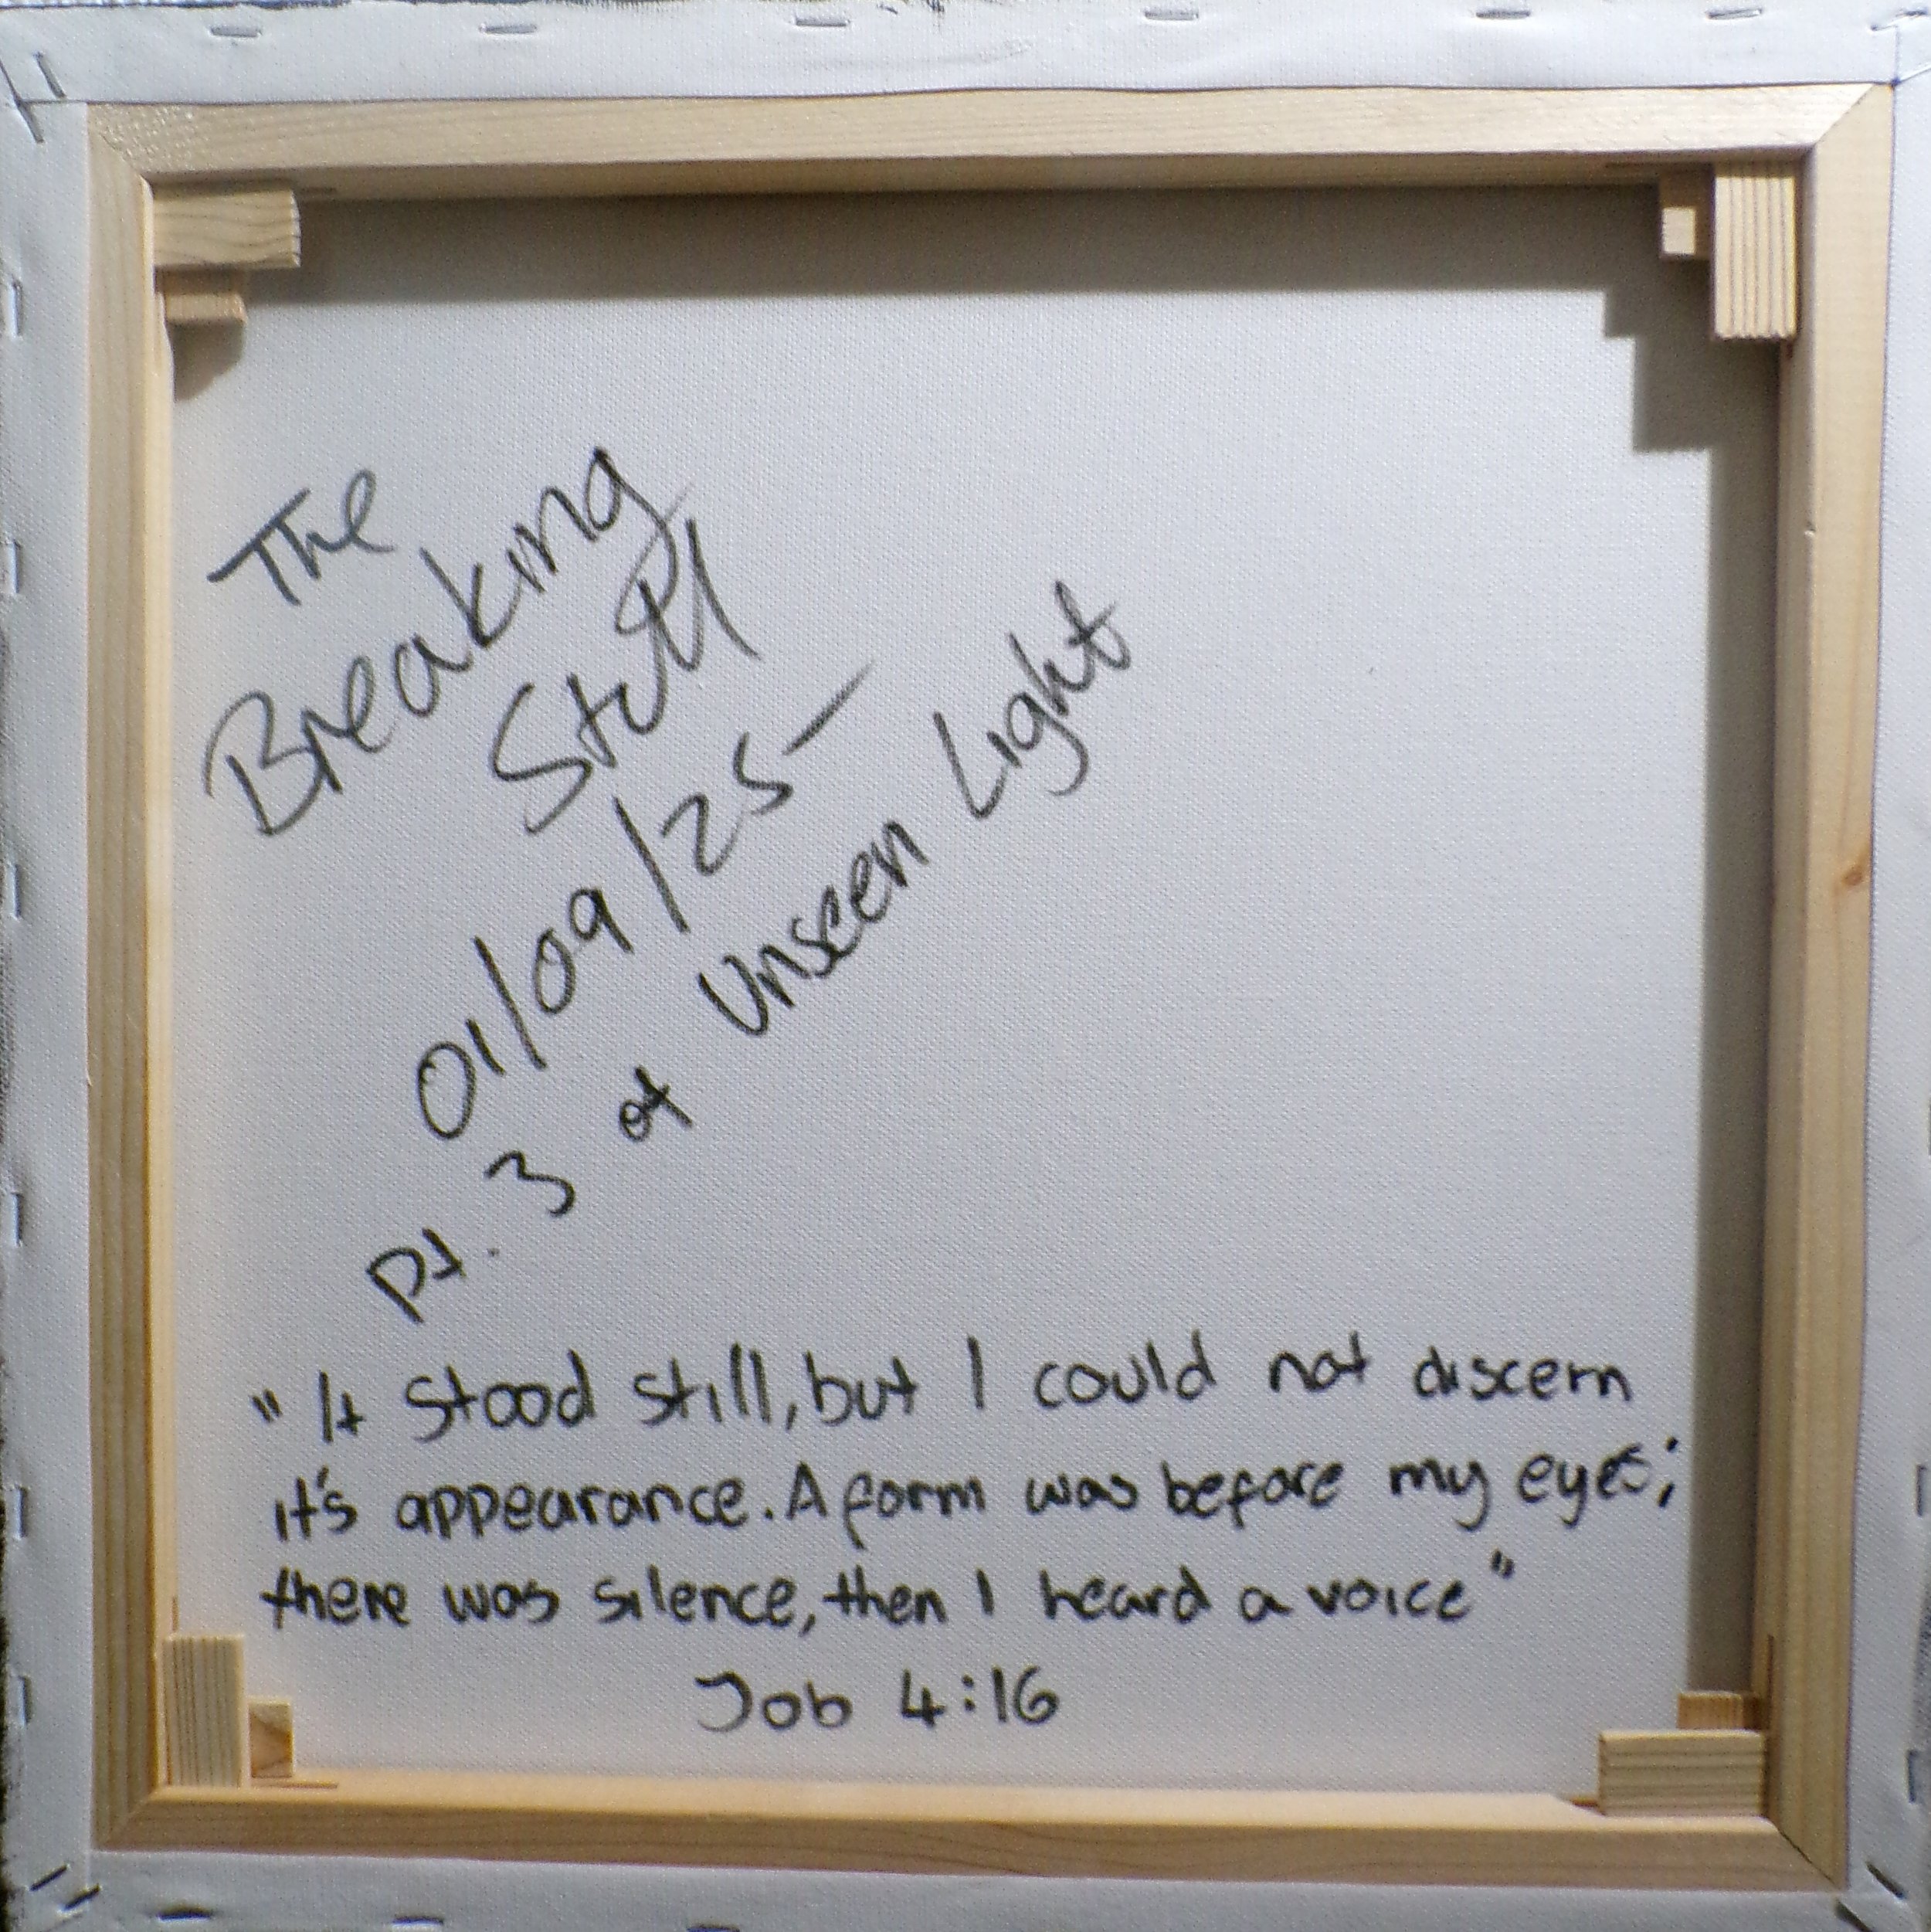 The
Breaking
Still
01/09/25-
Pt. 3 of Unseen Light
"It stood still, but I could not discern
it's appearance. A form was before my eyes;
there was silence, then I heard a voice"
Job 4:16